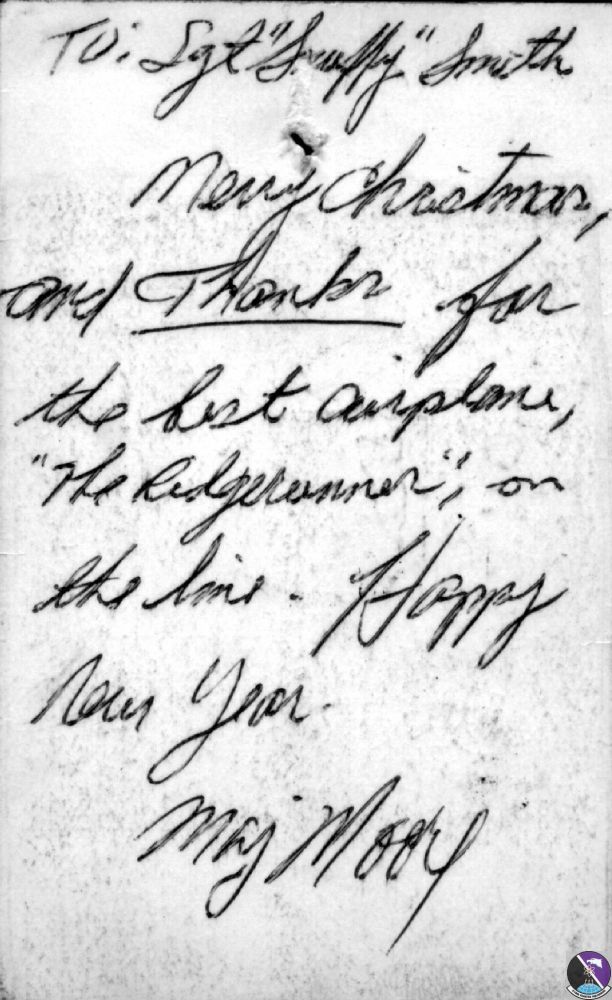 To: Sgt "Snuffy" Smith
Merry Christmas,
and Thanks for
the best airplane,
"The Ridgerunner", on
the line - Happy
New Year.
Maj Moore